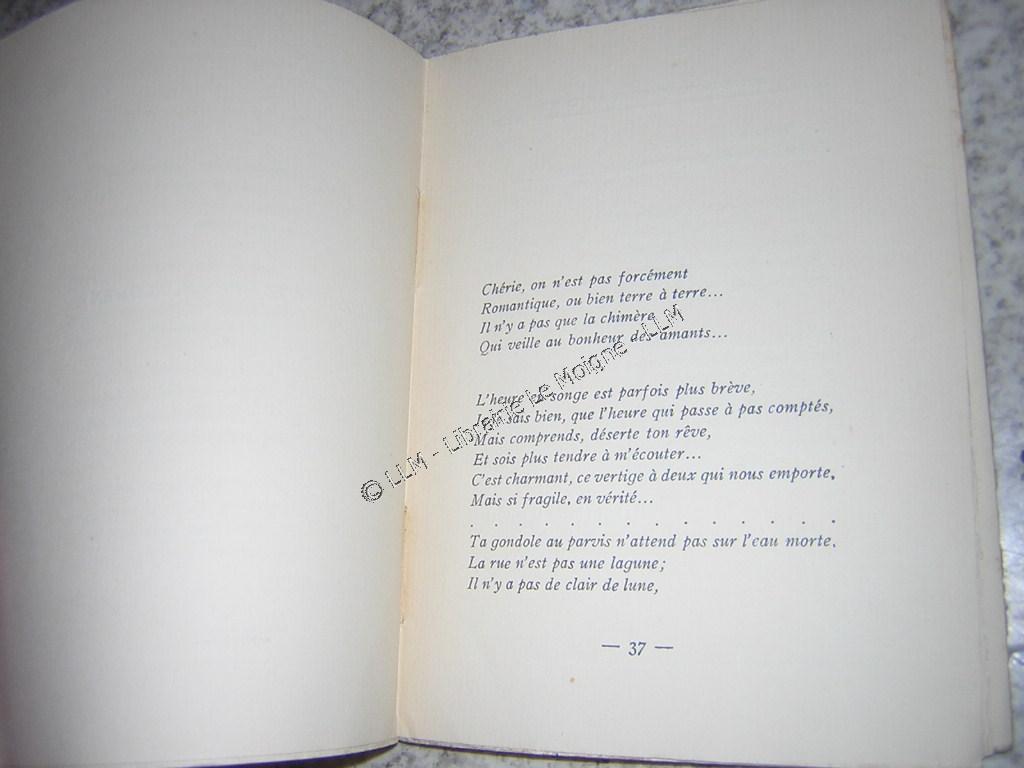 Chérie, on n'est pas forcément
Romantique, ou bien terre à terre...
Il n'y a pas que la chimère
Qui veille au bonheur des amants...
L'heure en songe est parfois plus brève,
Je sais bien, que l'heure qui passe à pas comptés,
Mais comprends, déserte ton rêve,
Et sois plus tendre à m'écouter...
C'est charmant, ce vertige à deux qui nous emporte,
Mais si fragile, en vérité...
. . . . . . . . . . . . . .
Ta gondole au parvis n'attend pas sur l'eau morte,
La rue n'est pas une lagune;
Il n'y a pas de clair de lune,
— 37 —
© LLM - Librairie Le Moigne - LLM